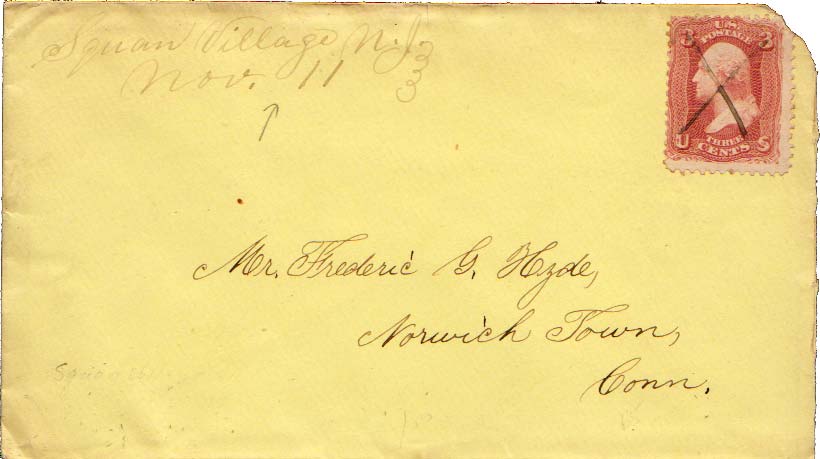 Squan Village N.J.
Nov. 11
3 U.S. 3
POSTAGE
U THREE S
CENTS
Mr. Frederic G. Hyde,
Norwich Town,
Conn.
Squan